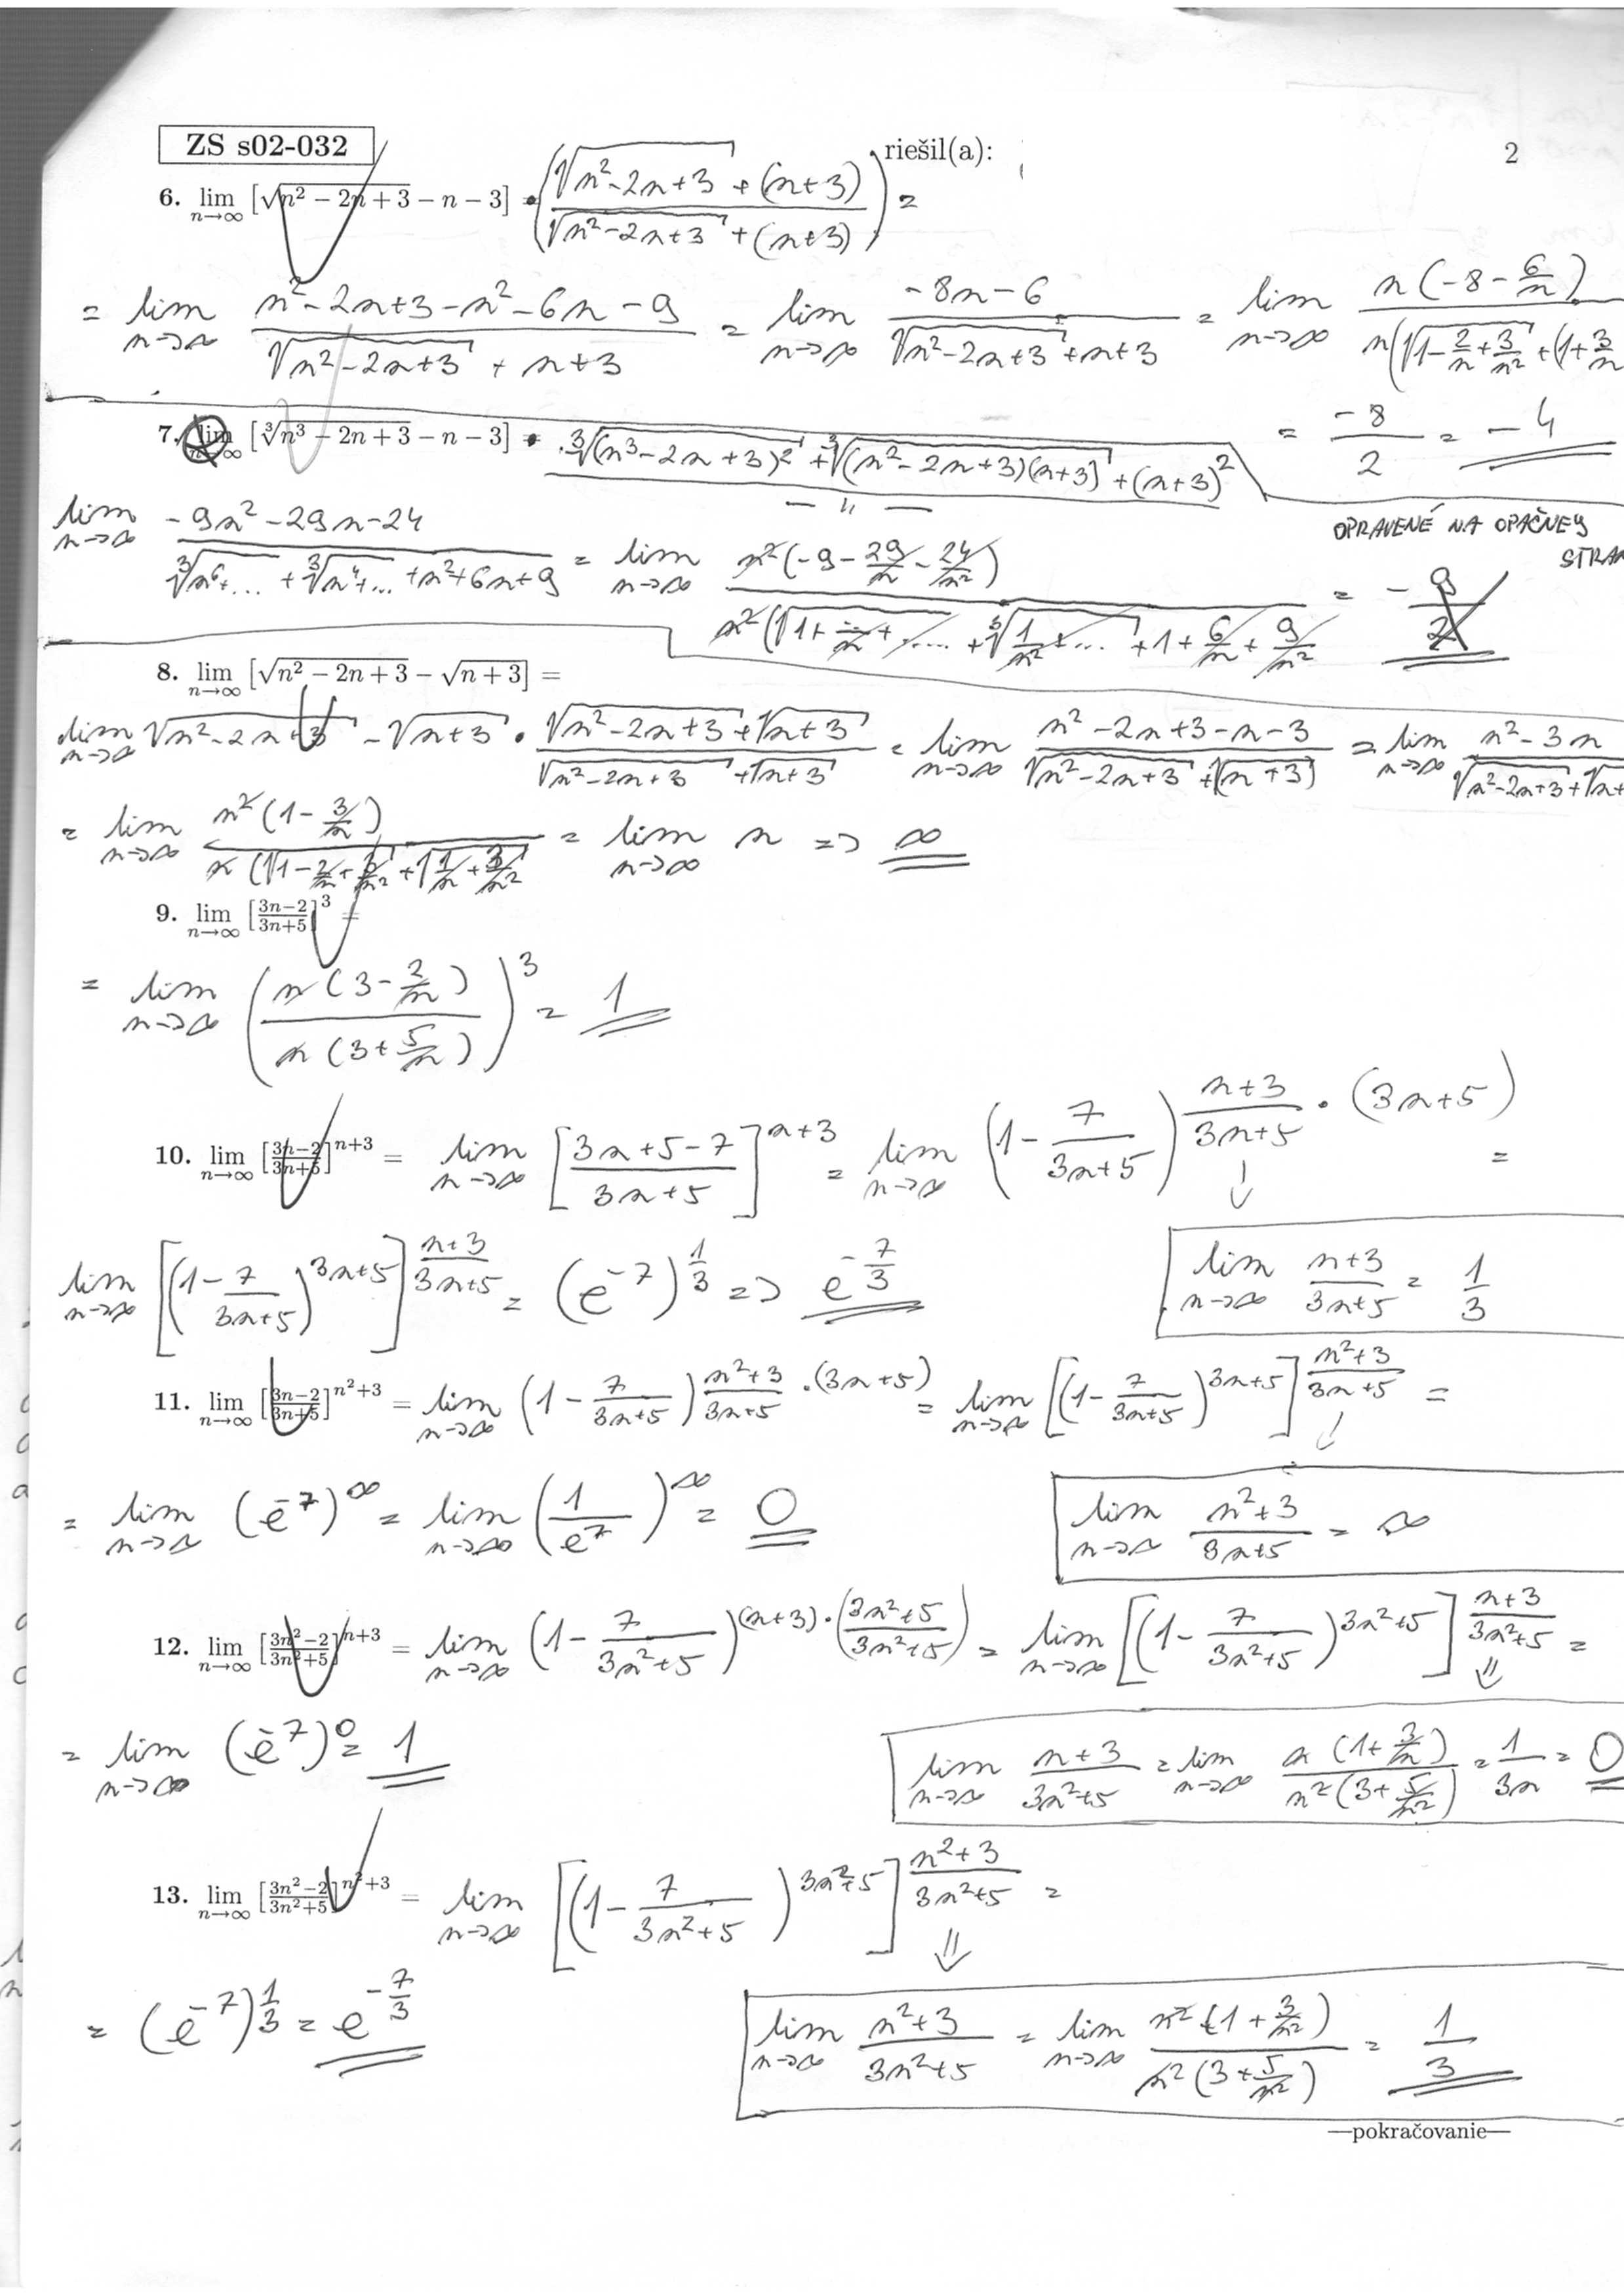 ZS s02-032 riešil(a): 2
6. lim n→∞ [√(n² − 2n + 3) − n − 3] · ((√(n²-2n+3) + (n+3)) / (√(n²-2n+3) + (n+3))) =
= lim n→∞ (n²-2n+3-n²-6n-9) / (√(n²-2n+3) + n+3) = lim n→∞ (-8n-6) / (√(n²-2n+3) + n+3) = lim n→∞ n(-8-6/n) / n(√(1-2/n+3/n²) + (1+3/n
= -8/2 = -4
7. lim n→∞ [∛(n³ − 2n + 3) − n − 3] · ∛(n³-2n+3)² + ∛(n²-2n+3)(n+3) + (n+3)²
— ıı —
lim n→∞ (-9n²-29n-24) / (∛(n⁶+...) + ∛(n⁴+...) + n²+6n+9) = lim n→∞ n²(-9-29/n-24/n²) / n²(√(1+ ... + ....) + ∛(1/n² + ...) + 1 + 6/n + 9/n² = -9/2
OPRAVENÉ NA OPAČNEJ
STRAN
8. lim n→∞ [√(n² − 2n + 3) − √(n + 3)] =
lim n→∞ √(n²-2n+3) - √(n+3) · (√(n²-2n+3) + √(n+3)) / (√(n²-2n+3) + √(n+3)) = lim n→∞ (n²-2n+3-n-3) / (√(n²-2n+3) + √(n+3)) = lim n→∞ (n²-3n) / (√(n²-2n+3) + √(n+
= lim n→∞ n²(1-3/n) / n(√(1-2/n+3/n²) + √(1/n+3/n²) = lim n→∞ n => ∞
9. lim n→∞ [(3n−2)/(3n+5)]³ =
= lim n→∞ (n(3-2/n) / n(3+5/n))³ = 1
10. lim n→∞ [(3n−2)/(3n+5)]^(n+3) = lim n→∞ [(3n+5-7)/(3n+5)]^(n+3) = lim n→∞ (1 - 7/(3n+5))^((n+3)/(3n+5) · (3n+5)) =
↓
lim n→∞ [(1 - 7/(3n+5))^(3n+5)]^((n+3)/(3n+5)) = (e^-7)^(1/3) => e^(-7/3)
lim n→∞ (n+3)/(3n+5) = 1/3
11. lim n→∞ [(3n−2)/(3n+5)]^(n²+3) = lim n→∞ (1 - 7/(3n+5))^((n²+3)/(3n+5) · (3n+5)) = lim n→∞ [(1 - 7/(3n+5))^(3n+5)]^((n²+3)/(3n+5)) =
↓
= lim n→∞ (e^-7)^∞ = lim n→∞ (1/e^7)^∞ = 0
lim n→∞ (n²+3)/(3n+5) = ∞
12. lim n→∞ [(3n²−2)/(3n²+5)]^(n+3) = lim n→∞ (1 - 7/(3n²+5))^((n+3)·((3n²+5)/(3n²+5))) = lim n→∞ [(1 - 7/(3n²+5))^(3n²+5)]^((n+3)/(3n²+5)) =
⇓
= lim n→∞ (e^-7)^0 = 1
lim n→∞ (n+3)/(3n²+5) = lim n→∞ n(1+3/n) / n²(3+5/n²) = 1/3n = 0
13. lim n→∞ [(3n²−2)/(3n²+5)]^(n²+3) = lim n→∞ [(1 - 7/(3n²+5))^(3n²+5)]^((n²+3)/(3n²+5)) =
⇓
= (e^-7)^(1/3) = e^(-7/3)
lim n→∞ (n²+3)/(3n²+5) = lim n→∞ n²(1+3/n²) / n²(3+5/n²) = 1/3
—pokračovanie—